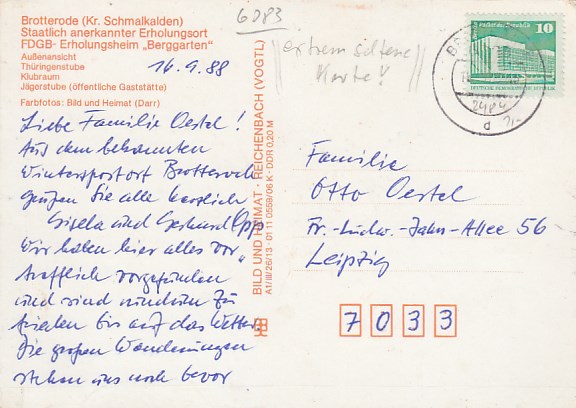 Brotterode (Kr. Schmalkalden)
Staatlich anerkannter Erholungsort
FDGB- Erholungsheim „Berggarten"
Außenansicht
Thüringenstube
Klubraum
Jägerstube (öffentliche Gaststätte)
Farbfotos: Bild und Heimat (Darr)
16.9.88
Liebe Familie Oestel!
Aus dem bekannten
Wintersportort Brotterode
grüßen Sie alle herzlich
Gisela und Gerhard Opp
Wir haben hier alles vor„
trefflich vorgefunden
und sind rundum zu
frieden bis auf das Wetter.
Die großen Wanderungen
stehen uns noch bevor
BILD UND HEIMAT · REICHENBACH (VOGTL)
A1/III/26/13 · 01 11 0559/06 K · DDR 0,20 M
6083
extrem seltene
Karte!
10
DEUTSCHE DEMOKRATISCHE REPUBLIK
d
Familie
Otto Oestel
Fr.-Ludw.-Jahn-Allee 56
Leipzig
7033